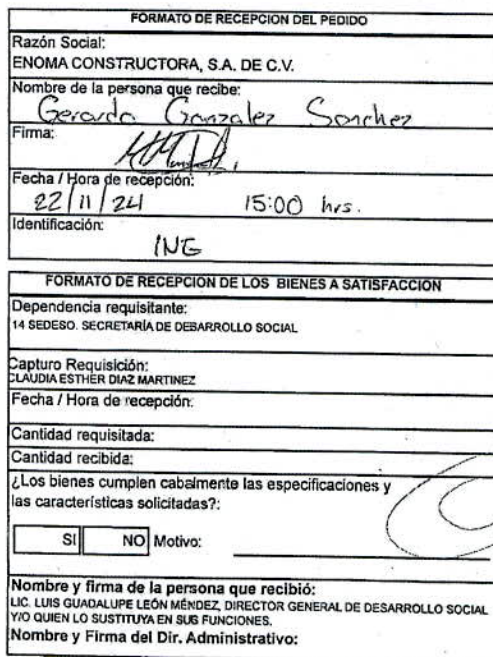 FORMATO DE RECEPCION DEL PEDIDO
Razón Social:
ENOMA CONSTRUCTORA, S.A. DE C.V.
Nombre de la persona que recibe:
Gerardo Gonzalez Sanchez
Firma:
Fecha / Hora de recepción:
22/11/24 15:00 hrs.
Identificación:
INE
FORMATO DE RECEPCION DE LOS BIENES A SATISFACCION
Dependencia requisitante:
14 SEDESO. SECRETARÍA DE DESARROLLO SOCIAL
Capturo Requisición:
CLAUDIA ESTHER DIAZ MARTINEZ
Fecha / Hora de recepción:
Cantidad requisitada:
Cantidad recibida:
¿Los bienes cumplen cabalmente las especificaciones y
las características solicitadas?:
SI NO Motivo:
Nombre y firma de la persona que recibió:
LIC. LUIS GUADALUPE LEÓN MÉNDEZ, DIRECTOR GENERAL DE DESARROLLO SOCIAL
Y/O QUIEN LO SUSTITUYA EN SUS FUNCIONES.
Nombre y Firma del Dir. Administrativo: